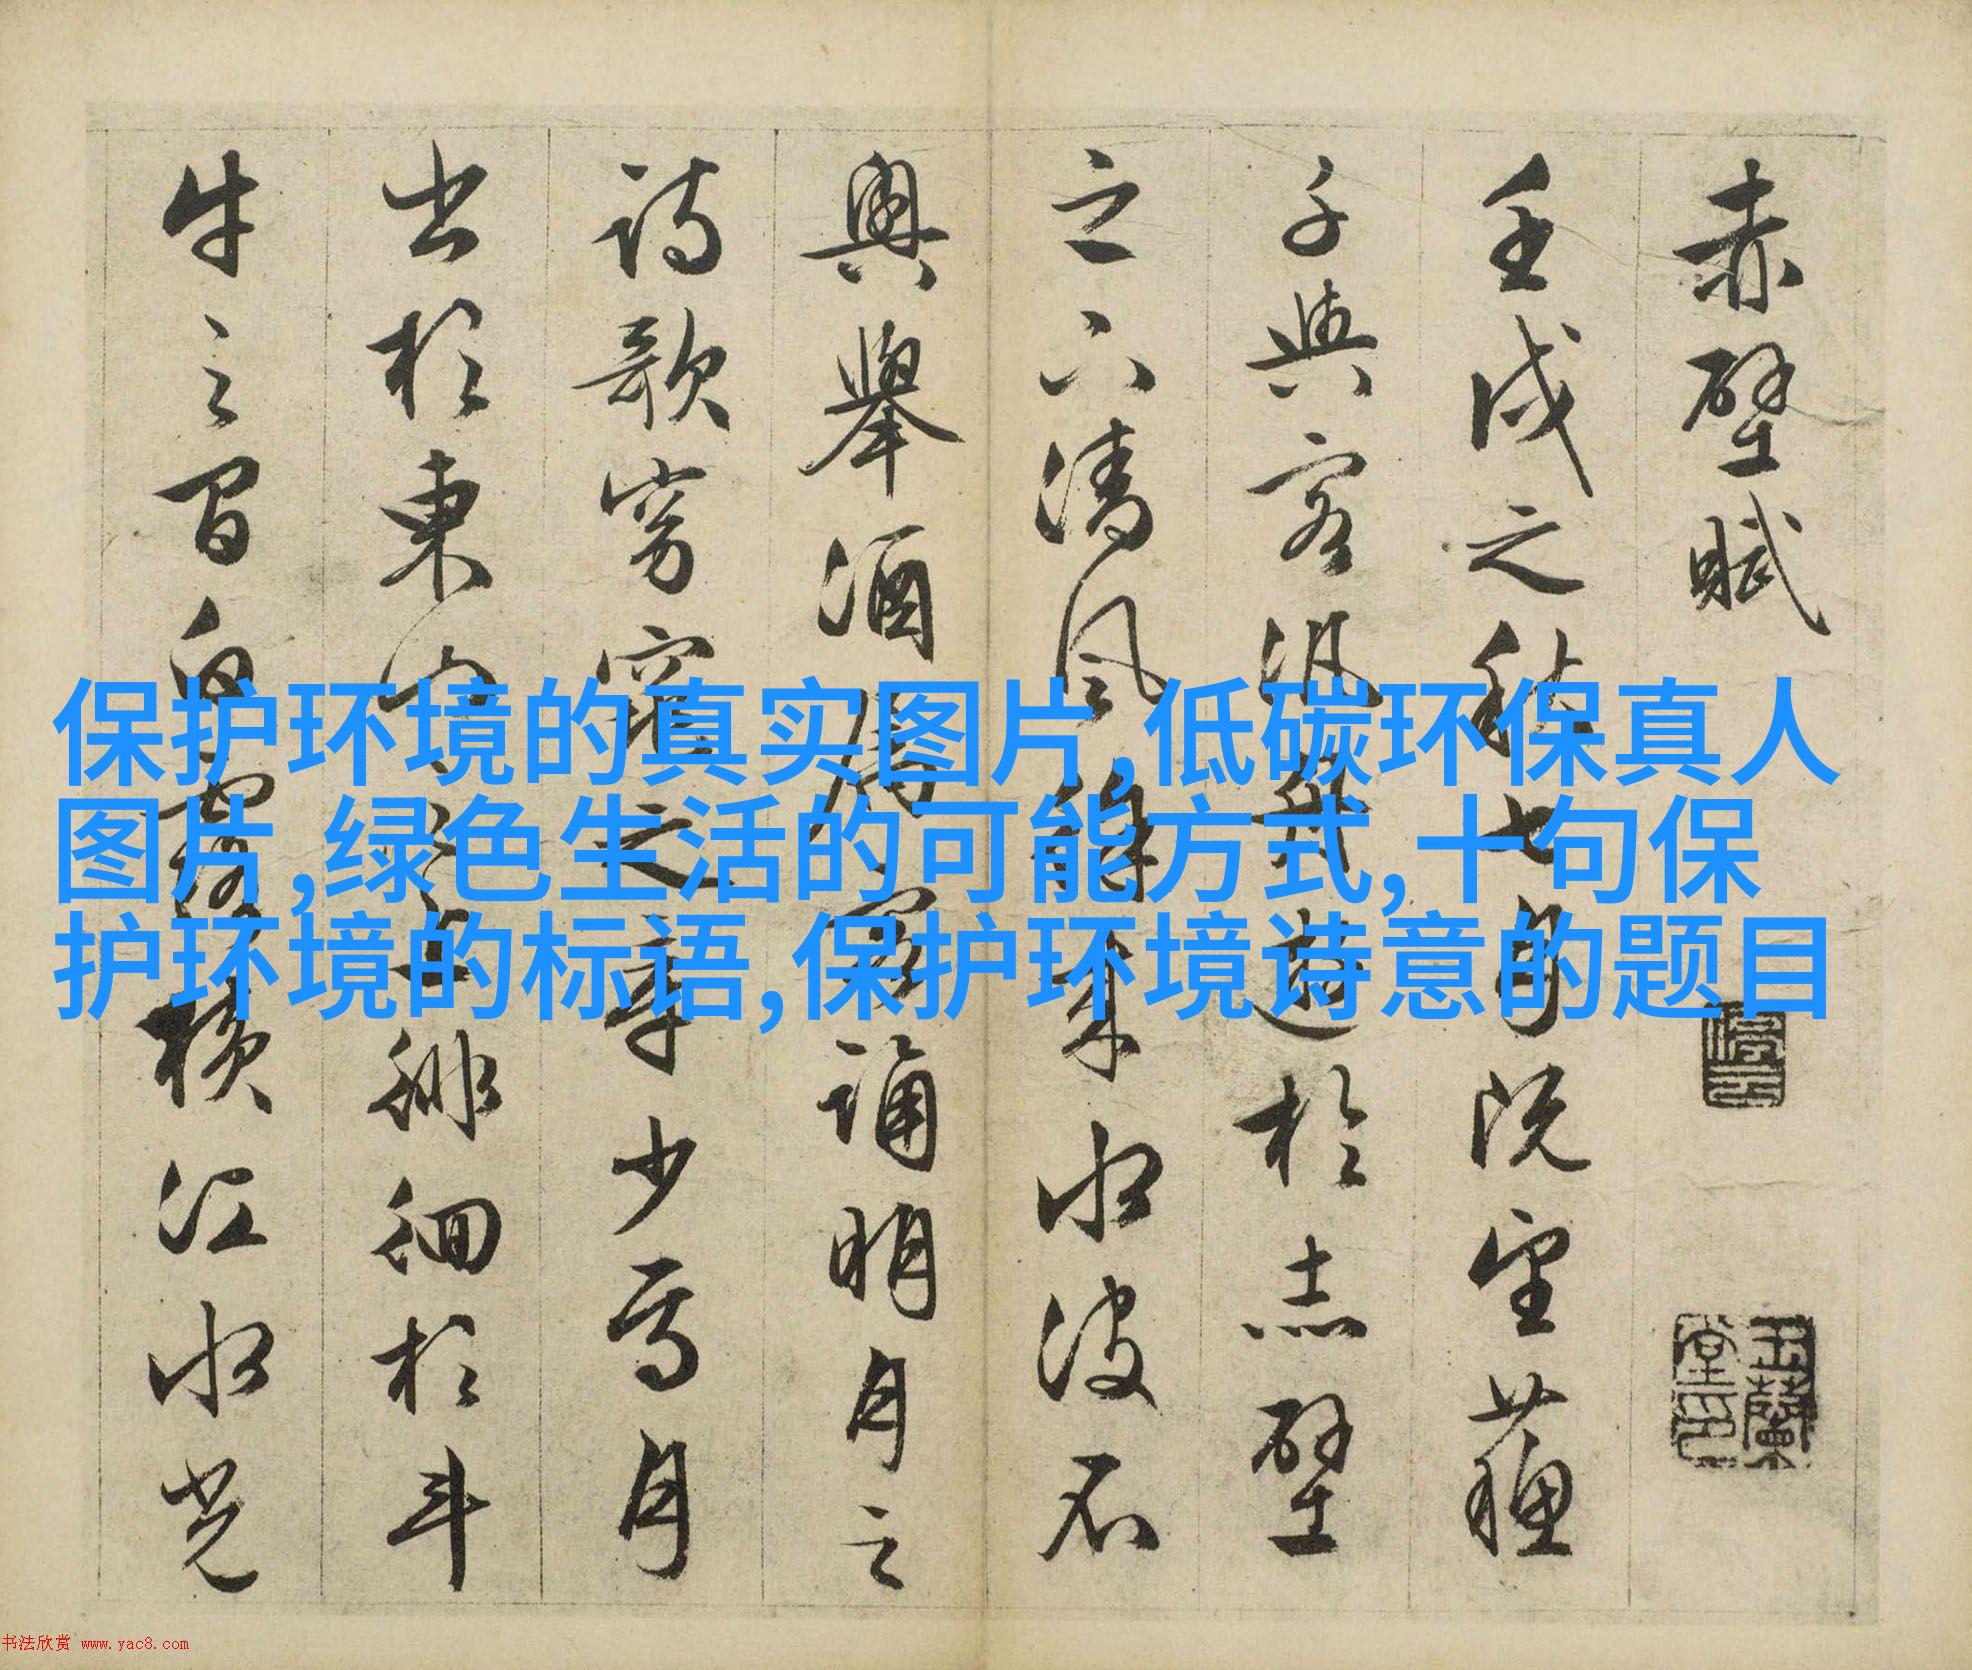 赤壁賦
壬戌之秋七月既望蘇
子與客汎舟遊於赤壁
之下清風徐來水波不
興舉酒屬客誦明月之
詩歌窈窕之章少焉月
出於東山之上徘徊於斗
牛之間白露橫江水光
停雲
玉蘭堂印
保护环境的真实图片,低碳环保真人
图片,绿色生活的可能方式,十句保
护环境的标语,保护环境诗意的题目
书法欣赏 www.yac8.com